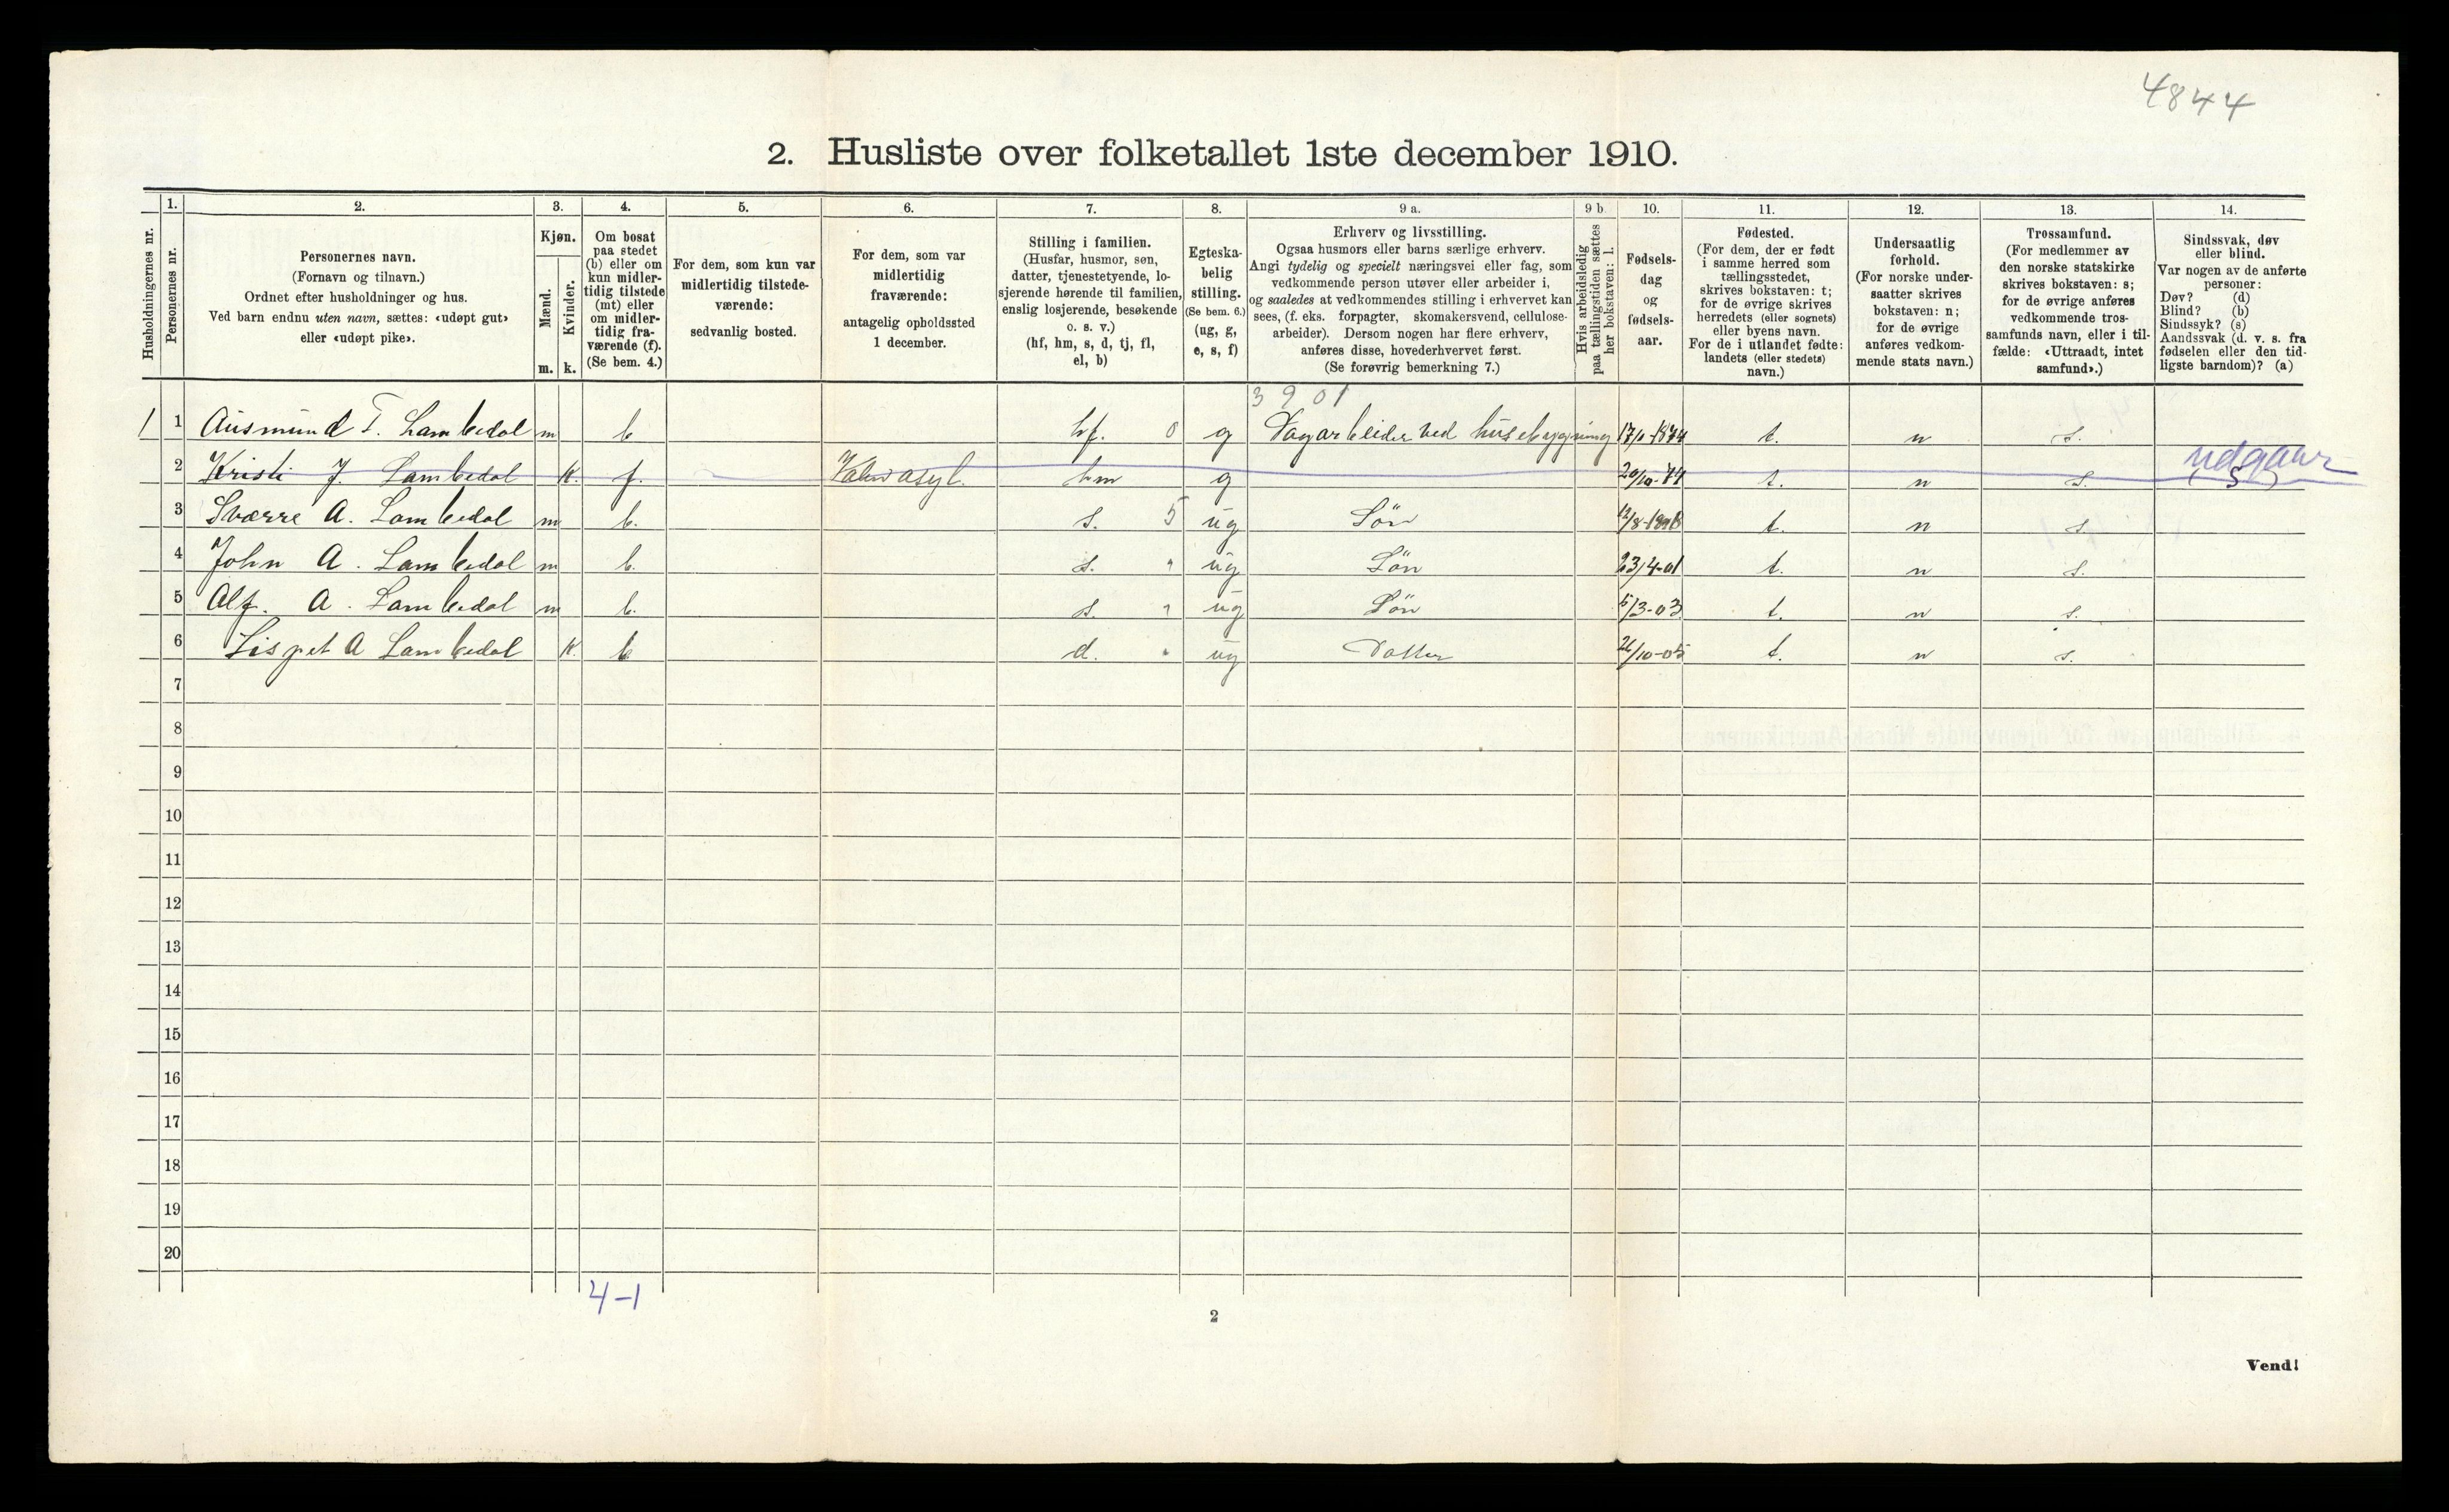 4844
2. Husliste over folketallet 1ste december 1910.
Husholdningernes nr.
1.
Personernes nr.
2.
Personernes navn.
(Fornavn og tilnavn.)
Ordnet efter husholdninger og hus.
Ved barn endnu uten navn, sættes: «udøpt gut»
eller «udøpt pike».
3.
Kjøn.
Mænd.
Kvinder.
m. k.
4.
Om bosat
paa stedet
(b) eller om
kun midler-
tidig tilstede
(mt) eller
om midler-
tidig fra-
værende (f).
(Se bem. 4.)
5.
For dem, som kun var
midlertidig tilstede-
værende:
sedvanlig bosted.
6.
For dem, som var
midlertidig
fraværende:
antagelig opholdssted
1 december.
7.
Stilling i familien.
(Husfar, husmor, søn,
datter, tjenestetyende, lo-
sjerende hørende til familien,
enslig losjerende, besøkende
o. s. v.)
(hf, hm, s, d, tj, fl,
el, b)
8.
Egteska-
belig
stilling.
(Se bem. 6.)
(ug, g,
e, s, f)
9 a.
Erhverv og livsstilling.
Ogsaa husmors eller barns særlige erhverv.
Angi tydelig og specielt næringsvei eller fag, som
vedkommende person utøver eller arbeider i,
og saaledes at vedkommendes stilling i erhvervet kan
sees, (f. eks. forpagter, skomakersvend, cellulose-
arbeider). Dersom nogen har flere erhverv,
anføres disse, hovederhvervet først.
(Se forøvrig bemerkning 7.)
9 b
Hvis arbeidsledig
paa tællingstiden sættes
her bokstaven: l.
10.
Fødsels-
dag
og
fødsels-
aar.
11.
Fødested.
(For dem, der er født
i samme herred som
tællingsstedet,
skrives bokstaven: t;
for de øvrige skrives
herredets (eller sognets)
eller byens navn.
For de i utlandet fødte:
landets (eller stedets)
navn.)
12.
Undersaatlig
forhold.
(For norske under-
saatter skrives
bokstaven: n;
for de øvrige
anføres vedkom-
mende stats navn.)
13.
Trossamfund.
(For medlemmer av
den norske statskirke
skrives bokstaven: s;
for de øvrige anføres
vedkommende tros-
samfunds navn, eller i til-
fælde: «Uttraadt, intet
samfund».)
14.
Sindssvak, døv
eller blind.
Var nogen av de anførte
personer:
Døv? (d)
Blind? (b)
Sindssyk? (s)
Aandssvak (d. v. s. fra
fødselen eller den tid-
ligste barndom)? (a)
3901
1 1 Ausmund T. Lambedal m b hf. 0 g Dagarbeider ved husebygning t. n s.
udgaar
2 Kristi J. Lambedal k. f. hm g 29/10-77 t. n s. s
3 Sværre A. Lambedal m b. s. 5 ug Sön t. n s.
4 John A. Lambedal m b. s. " ug Sön 23/4-01 t. n s.
5 Alf. A. Lambedal m b. s. " ug Sön t. n s.
6 Lispet A Lambedal k. b d. " ug Datter t. n s.
7
8
9
10
11
12
13
14
15
16
17
18
19
20
4-1
2
Vend!